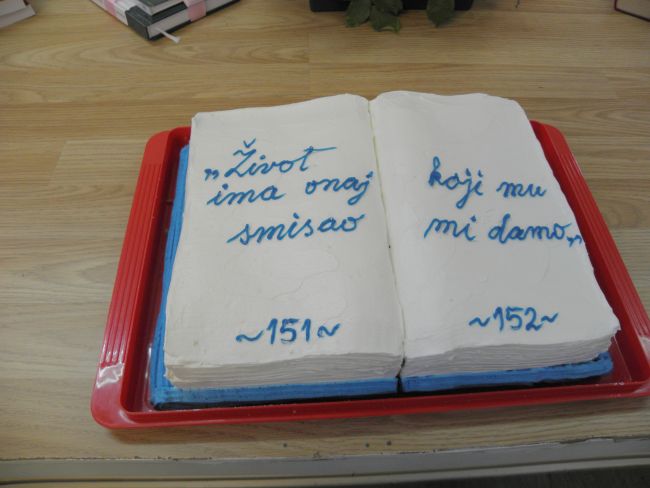 „Život
ima onaj
smisao
~151~
koji mu
mi damo„
~152~